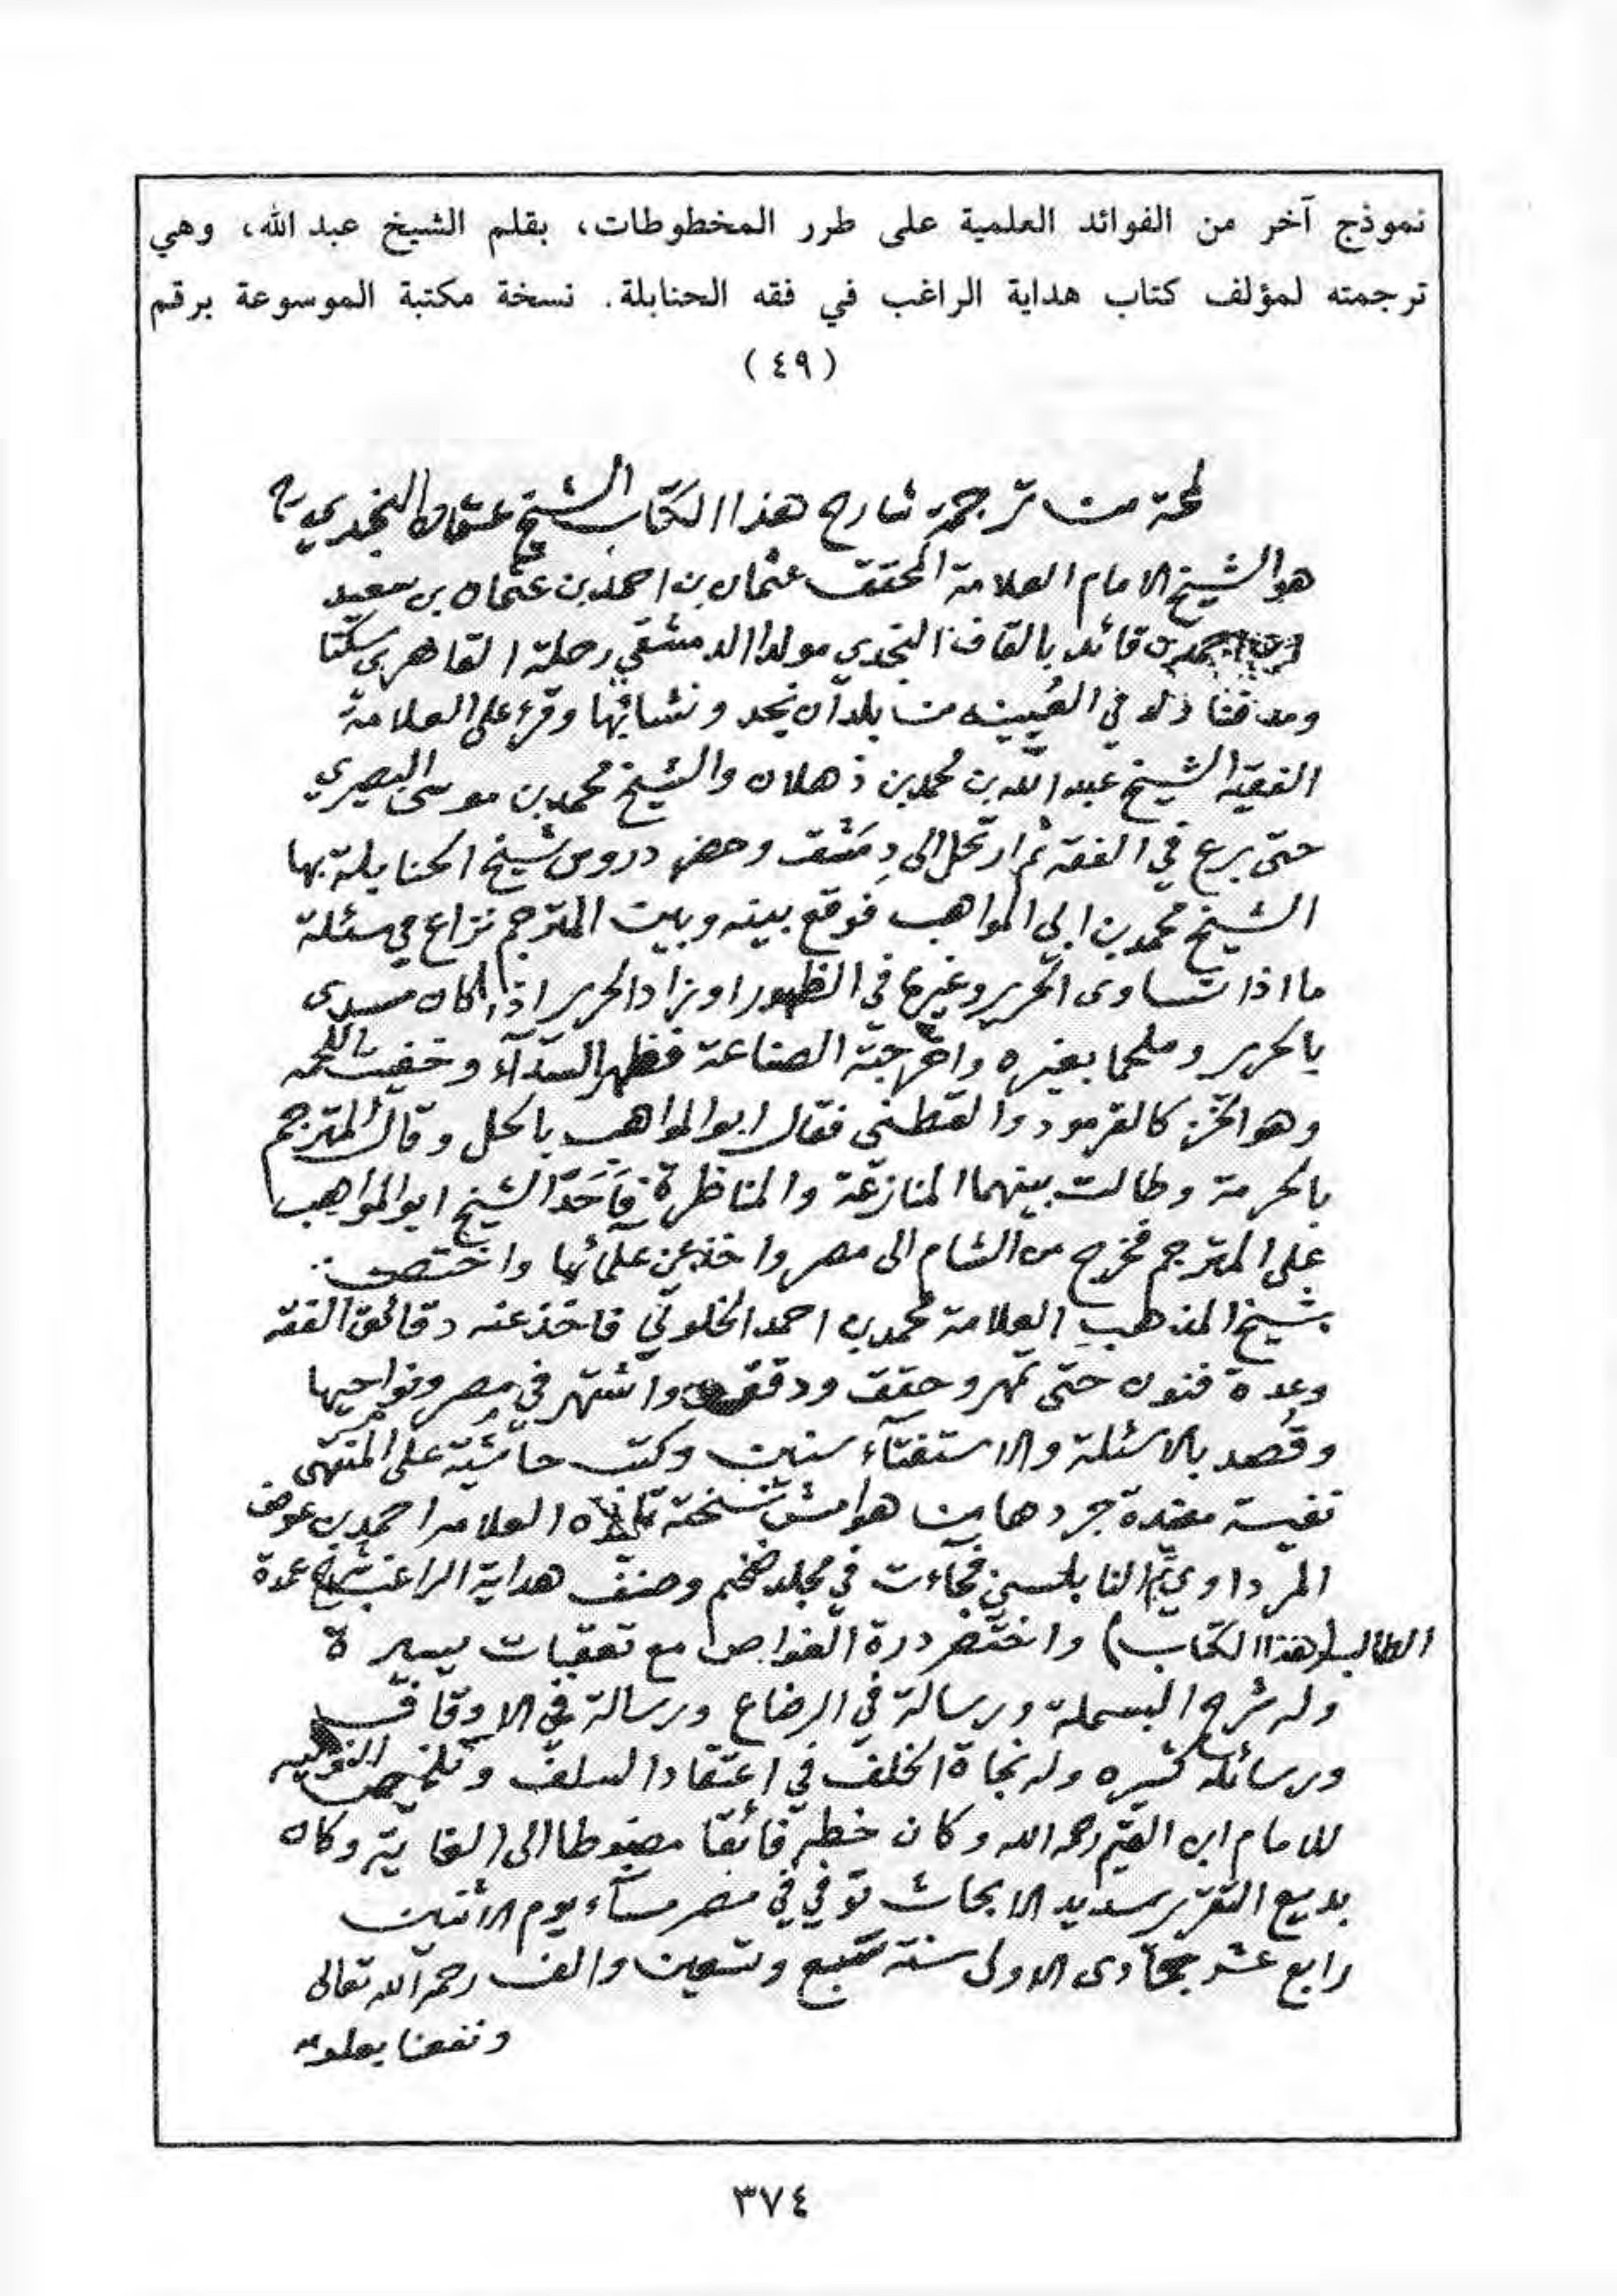 نموذج آخر من الفوائد العلمية على طرر المخطوطات، بقلم الشيخ عبد الله، وهي
ترجمته لمؤلف كتاب هداية الراغب في فقه الحنابلة. نسخة مكتبة الموسوعة برقم
(٤٩)
لمحة من ترجمة شارح هذا الكتاب الشيخ عثمان النجدي رح
هو الشيخ الامام العلامة المحقق عثمان بن احمد بن عثمان بن سعيد
قائد بالقاف النجدي مولدا الدمشقي رحلة القاهري سكنا
ومدفنا ولد في العُيينه من بلدان نجد ونشا بها وقرء على العلامة
الفقيه الشيخ عبد الله بن محمد بن ذهلان والشيخ محمد بن موسى البصيري
حتى برع في الفقه ثم ارتحل الى دِمَشق وحضر دروس شيخ الحنابلة بها
الشيخ محمد بن ابي المواهب فوقع بينه وبين المترجم نزاع في مسئلة
ما اذا تساوى الحرير وغيره في الظهور او زاد الحرير اذا كان مسدى
بالحرير وملحما بغيره واخرجته الصناعة فظهر السدآء وخفيت اللحمه
وهو الخز كالقرمود والقطني فقال ابو المواهب بالحل وقال المترجم
بالحرمة وطالت بينهما المنازعة والمناظرة فَاَحَدَّ الشيخ ابو المواهب
على المترجم فخرج من الشام الى مصر واخذ عن علمائها واختص
بشيخ المذهب العلامة محمد بن احمد الخلوتي فاخذ عنه دقائق الفقه
وعدة فنون حتى تمهر وحقق ودقق واشتهر في مصر ونواحيها
وقُصد بالاسئلة والاستفتآء سنين وكتب حاشية على المنتهى
نفيسة مفيدة جردها من هوامش نسخته تلميذه العلامه احمد بن عوض
المرداوي ثم النابلسي فجآءت في مجلد ضخم وصنف هداية الراغب شرح عمدة
الطالب (هذا الكتاب) واختصر درة الغواص مع تعقبات يسيرة
وله شرح البسملة ورسالة في الرضاع ورسالة في الاوقاف
ورسائله كثيره وله نجاة الخلف في اعتقاد السلف وتلخيص النونيه
للامام ابن القيم رحمه الله وكان خطه فائقا مضبوطا الى الغاية وكان
بديع التقرير سديد الابحاث توفي في مصر مسآء يوم الاثنين
رابع عشر جمادى الاولى سنة سبع وتسعين والف رحمه الله تعالى
ونفعنا بعلومه
٣٧٤